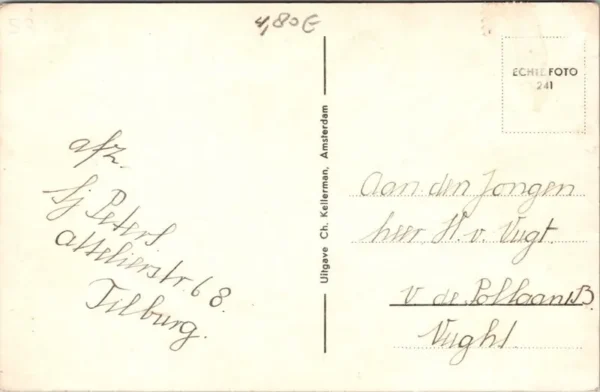 4,80€
ECHTE FOTO
241
Uitgave Ch. Kellerman, Amsterdam
afz.
Sj Peters
attelierstr. 68.
Tilburg.
Aan den Jongen
heer H. v. Vugt.
v. de
Vught